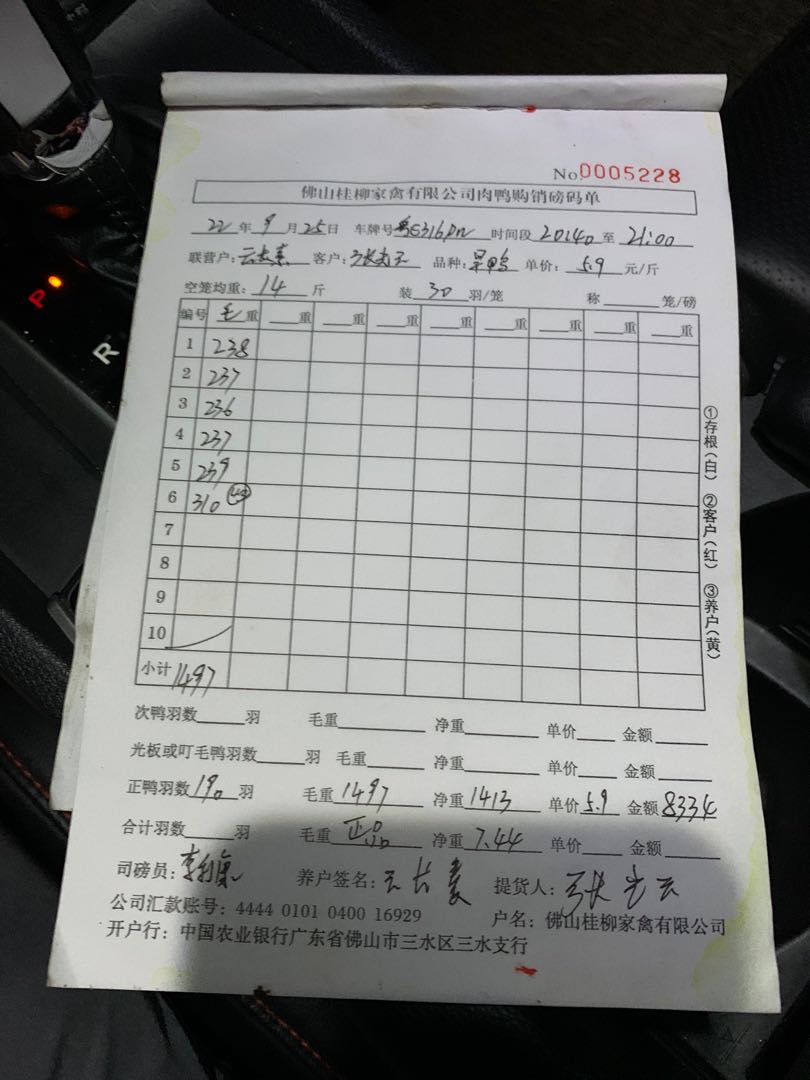 No.0005228
佛山桂柳家禽有限公司肉鸭购销磅码单
22年9月25日 车牌号 时间段 20:40至21:00
联营户: 客户: 品种: 鸭 单价:5.9元/斤
空笼均重:14斤 装30羽/笼 称 笼/磅
编号 毛重 重 重 重 重 重 重 重 重
1 238
2 237
3 236
4 237
5 239
6 310
7
8
9
10
小计 1497
①存根(白) ②客户(红) ③养户(黄)
次鸭羽数 羽 毛重 净重 单价 金额
光板或叮毛鸭羽数 羽 毛重 净重 单价 金额
正鸭羽数190羽 毛重1497 净重1413 单价5.9 金额8334
合计羽数 羽 毛重正品 净重7.44 单价 金额
司磅员: 养户签名: 提货人:
公司汇款账号:4444 0101 0400 16929 户名:佛山桂柳家禽有限公司
开户行:中国农业银行广东省佛山市三水区三水支行
P
R